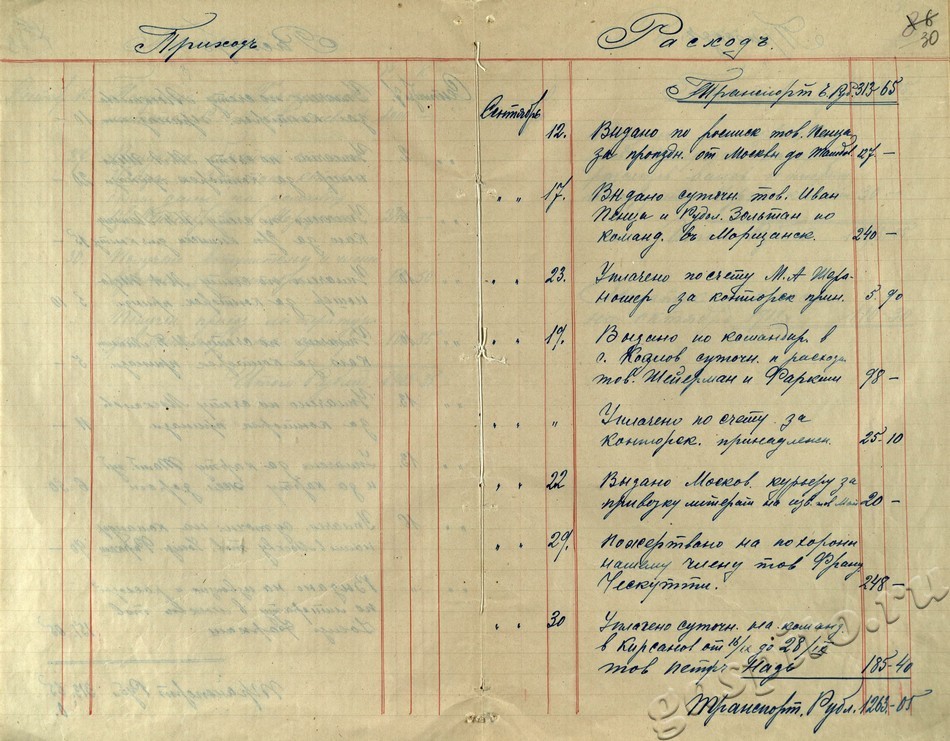 Приходъ
Расходъ
30
Транспорт в Руб. 313-65
Сентябрь
12. Выдано по росписк тов. Пенца
за проездн. от Москвы до Тамбов 127 -
" " 17. Выдано суточн. тов. Иван
Пенца и Рудол. Зельтан по
команд. въ Моршанск. 240 -
" " 23. Уплачено по счету М. А
за конторск прин. 5 90
" " 19. Выдано по командир. в
г. Козлов суточн. и расход.
тов. Шейерман и Фаркаш 98 -
" " " Уплачено по счету за
конторск. принадлежн. 25-10
" " 22 Выдано Москов. курьеру за
привозку литерат 20 -
" " 29. Пожертвано на похорони
нашему члену тов Франц
Ческутти. 248 -
" " 30 Уплачено суточн. на команд.
в Кирсанов от 16/IX до 28/IX
тов Петръ Надь 185-40
Транспорт. Рубл. 1263-05
gaspito.ru